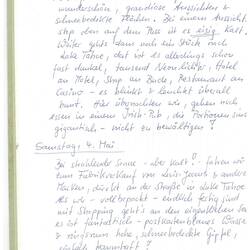 wunderschön, grandiose Aussichten &
schneebedeckte Flächen. Bei einem Aussichts-
stop oben auf dem Pass ist es eisig kalt.
Weiter geht's dann noch ein Stück nach
Lake Tahoe, dort ist es allerdings schon
fast dunkel, tausend Neonlichter, Hotel
an Hotel, Shop an Bude, Restaurant an
Casino - es blinkt & leuchtet überall
bunt. Hier übernachten wir, gehen noch
essen in einem Irish-Pub, die Portionen sind
gigantisch - nicht zu bewältigen!
Samstag, 4. Mai
Bei strahlender Sonne - aber kalt! - fahren wir
zum Fabrikverkauf von Levi's und andere
Marken, direkt an der Straße in Lake Tahoe.
Als wir - vollbepackt - endlich fertig sind
mit Shopping geht's an den eigentlichen See
es ist fantastisch - postkartenblaues Wasse
& ringsum hohe, schneebedeckte Gipfel,
einfach traumhaft!